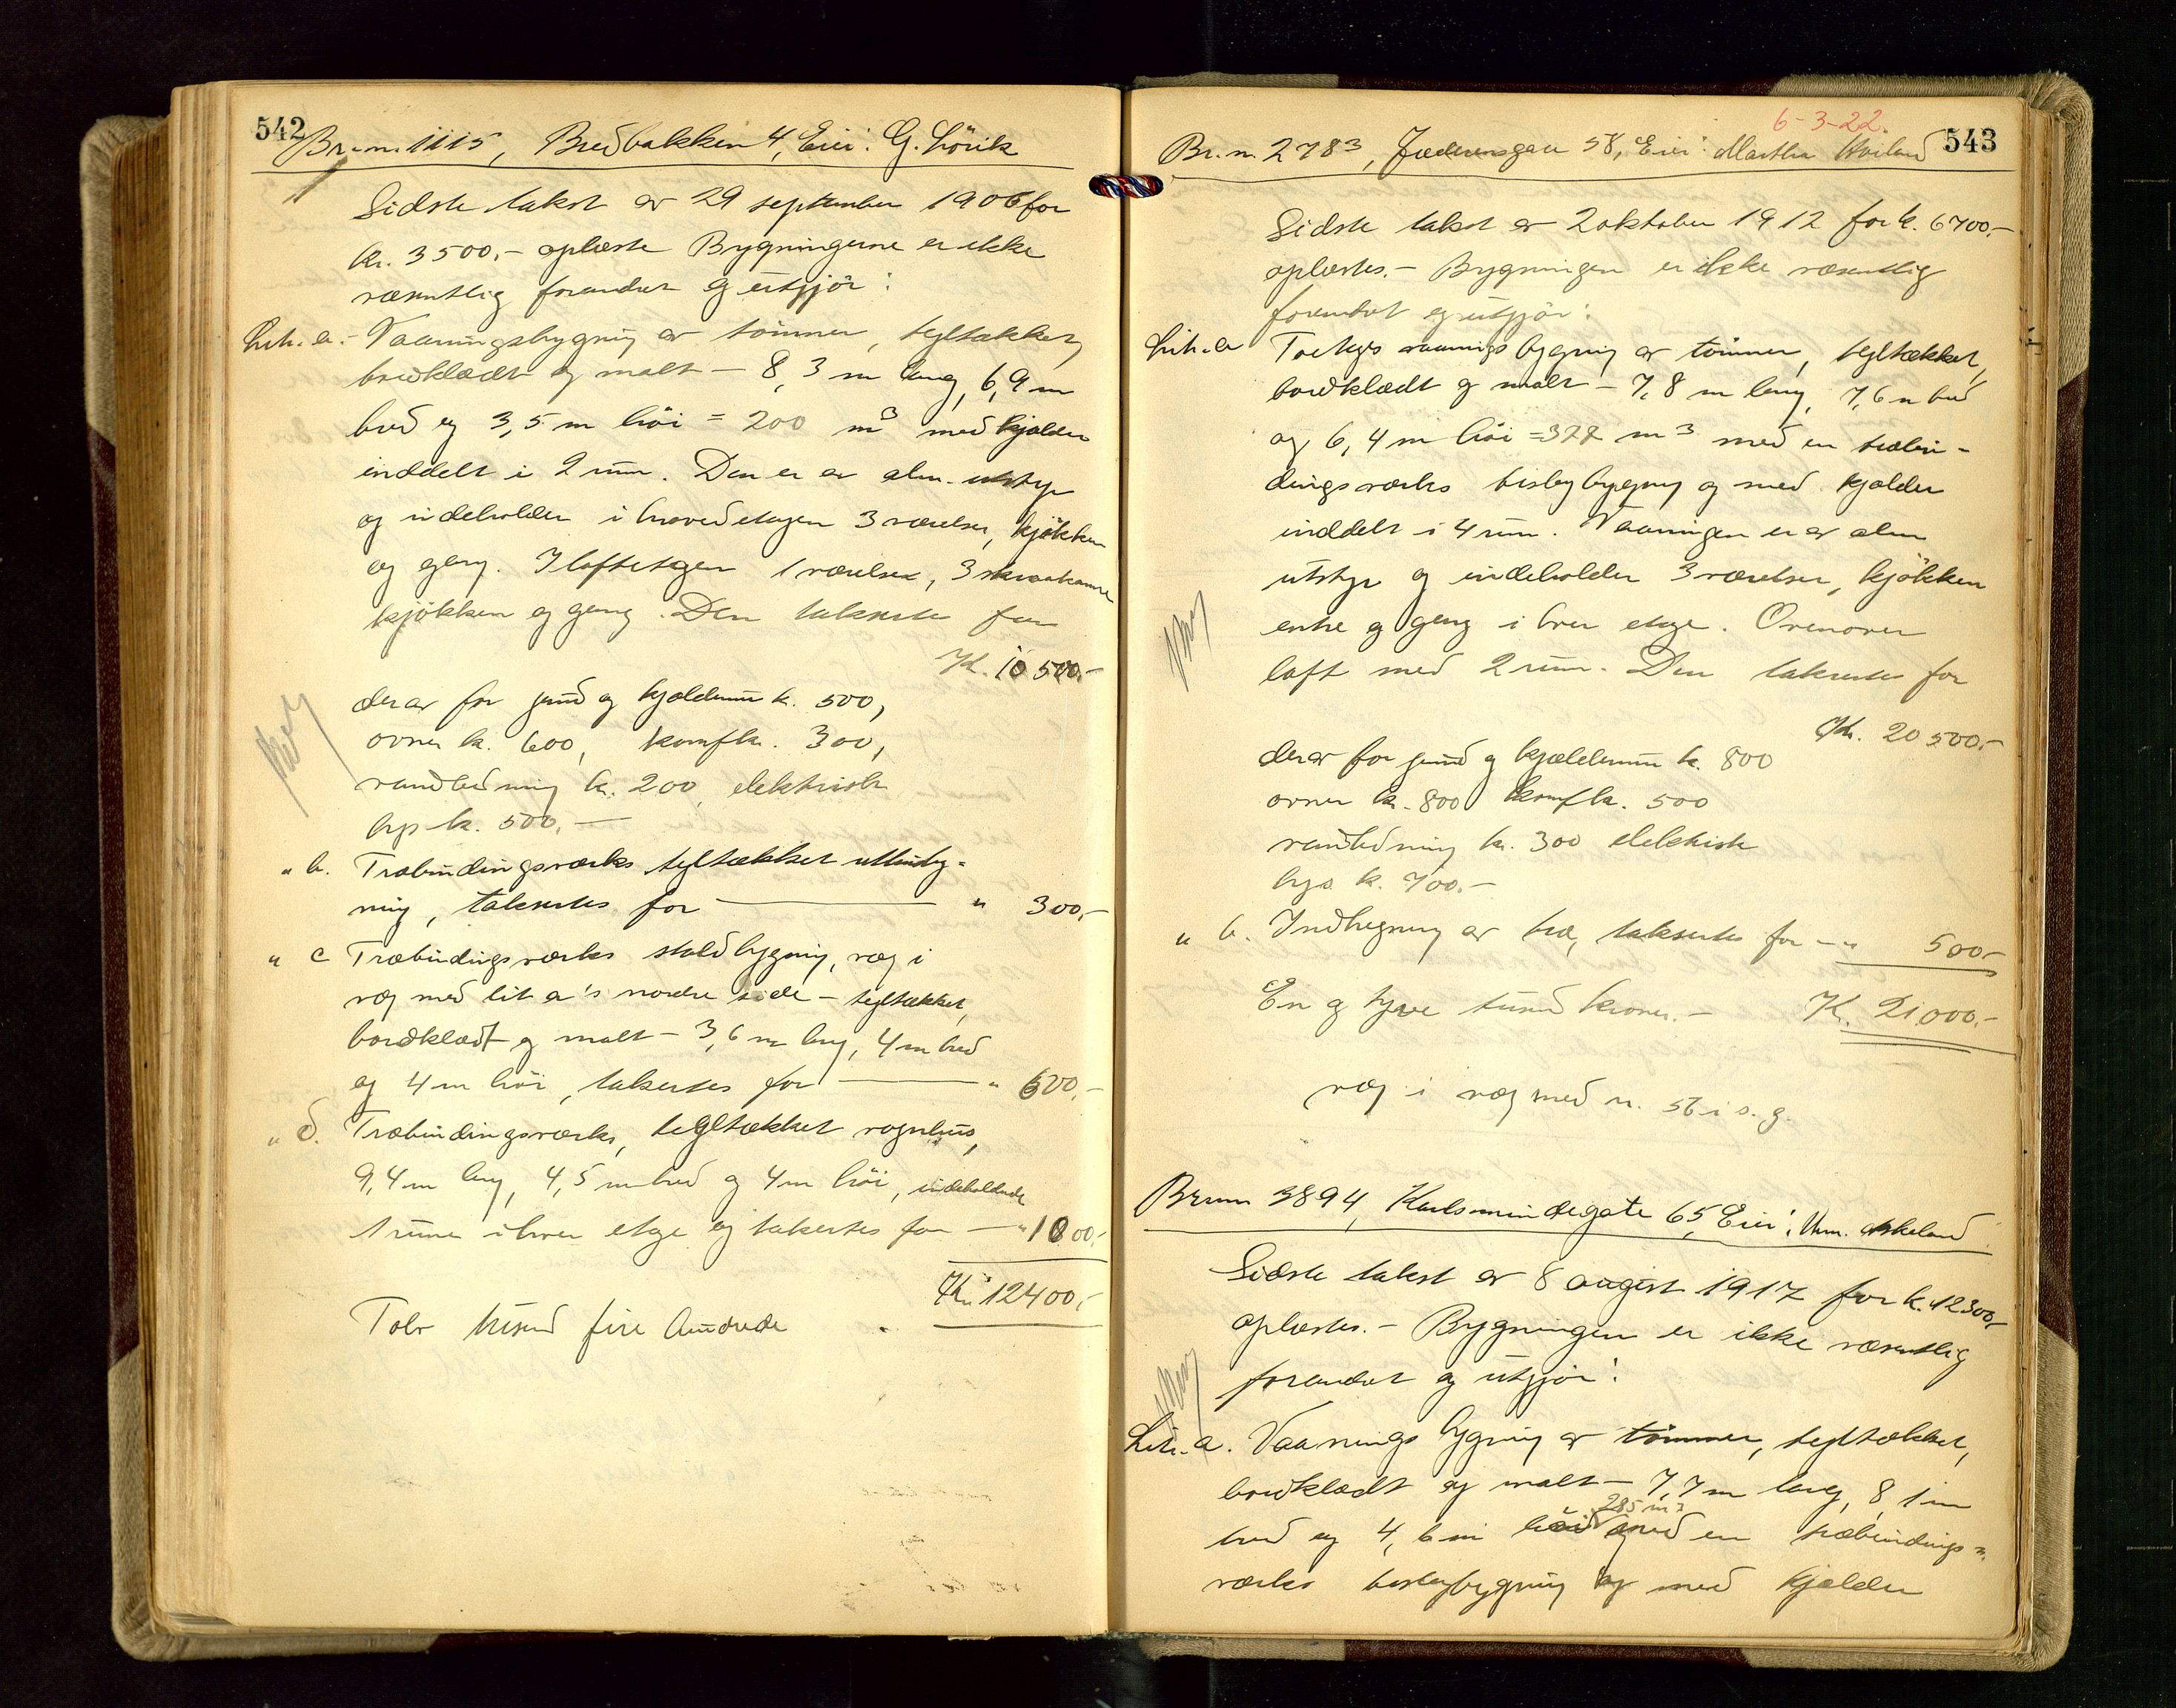 542
Br.n. 1115, Bredbakken 4, Eier: G. Lörik
Sidste takst av 29 september 1906 for
kr. 3500,- oplæste Bygningerne er ikke
væsentlig forandret og utgjör:
Lit. a. - Vaaningsbygning av tömmer, tegltækket,
bordklædt og malt - 8,3 m lang, 6,9 m
bred og 3,5 m höi = 200 m3 med kjælder
inddelt i 2 rum. Den er av alm. utstyr
og indeholder i hovedetagen 3 værelser, kjökken
og gang. I loftetagen 1 værelse, 3 skraakamre
kjökken og gang. Den takseres for
Kr. 10500.-
derav for grund og kjælderrum kr. 500,
ovner kr. 600, komf kr. 300,
vandledning kr. 200, elektrisk
lys kr. 500.-
" b. Træbindingsværks tegltækket uttbyg-
ning, taksertes for " 300,-
" c Træbindingsværks staldbygning, væg i
væg med lit a's nordre side - tegltækket,
bordklædt og malt - 3,6 m lang, 4 m bred
og 4 m höi, taksertes for " 600,-
" d. Træbindingsværks, tegltækket vognhus,
9,4 m lang, 4,5 m bred og 4 m höi, indeholdende
1 rum i hver etage og taksertes for - " 1000.-
Kr. 12400,-
Tolv tusind fire hundrede
6-3-22.
543
Br.n. 2783, Jædersgaten 58, Eier: Martha Hviland
Sidste takst av 2 oktober 1912 for k. 6700.-
oplæstes. - Bygningen er ikke væsentlig
forandret og utgjör:
Lit. a Toetages vaaningsbygning av tömmer, tegltækket,
bordklædt og malt - 7,8 m lang, 7,6 m bred
og 6,4 m höi = 377 m3 med en træbin-
dingsværks bislagbygning og med kjælder
inddelt i 4 rum. Vaaningen er av alm
utstyr og indeholder 3 værelser, kjökken
entre og gang i hver etage. Ovenover
loft med 2 rum. Den taksertes for
Kr. 20500.-
derav for grund og kjælderrum k. 800
ovner kr. 800 komf kr. 500
vandledning kr. 300 elektrisk
lys k. 700.-
" b. Indhegning av træ, taksertes for - " 500-
En og tyve tusind kroner. - Kr. 21000.-
væg i væg med n. 56 i s. g.
Br.nm 3894, Karlsmindegate 65, Eier: Askeland
Sidste takst av 8 august 1917 for k. 12300,-
oplæstes. - Bygningen er ikke væsentlig
forandret og utgjör:
Lit. a. Vaaningsbygning av tömmer, tegltækket,
bordklædt og malt - 7,7 m lang, 8,1 m
285 m3
bred og 4,6 m höi og med en træbindings-
værks bislagbygning og med kjælder